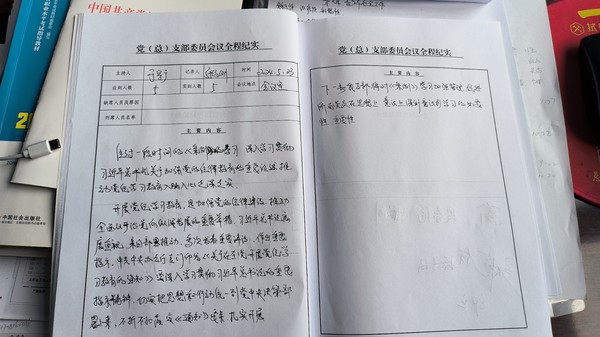 中国共产党
党（总）支部委员会议全程纪实
主持人
记录人
时间
2024.5.23
应到人数
5
实到人数
5
会议地点
会议室
缺席人员及原因
列席人员名单
主要内容
经过一段时间的《条例》学习 深入学习贯彻
习近平总书记关于加强党的纪律教育的重要论述，推
动党纪学习教育入脑入心走深走实
开展党纪学习教育，是加强党的纪律建设，推动
全面从严治党向纵深发展的重要举措，习近平总书记高
度重视，亲自部署推动，多次发表重要讲话，作出重要
指示，中央中办公厅专门印发《关于在全党开展党纪学
习教育的通知》要深入学习贯彻习近平总书记的重要
指示精神，切实把思想和行动统一到党中央决策部
署上来，不折不扣落实《通知》要求 扎实开展
党（总）支部委员会议全程纪实
主要内容
下一步我支部将对《条例》学习加强管理，促进
所有党员在思想上 意识上深刻意识到学习的必要
性 重要性
中国社会出版社